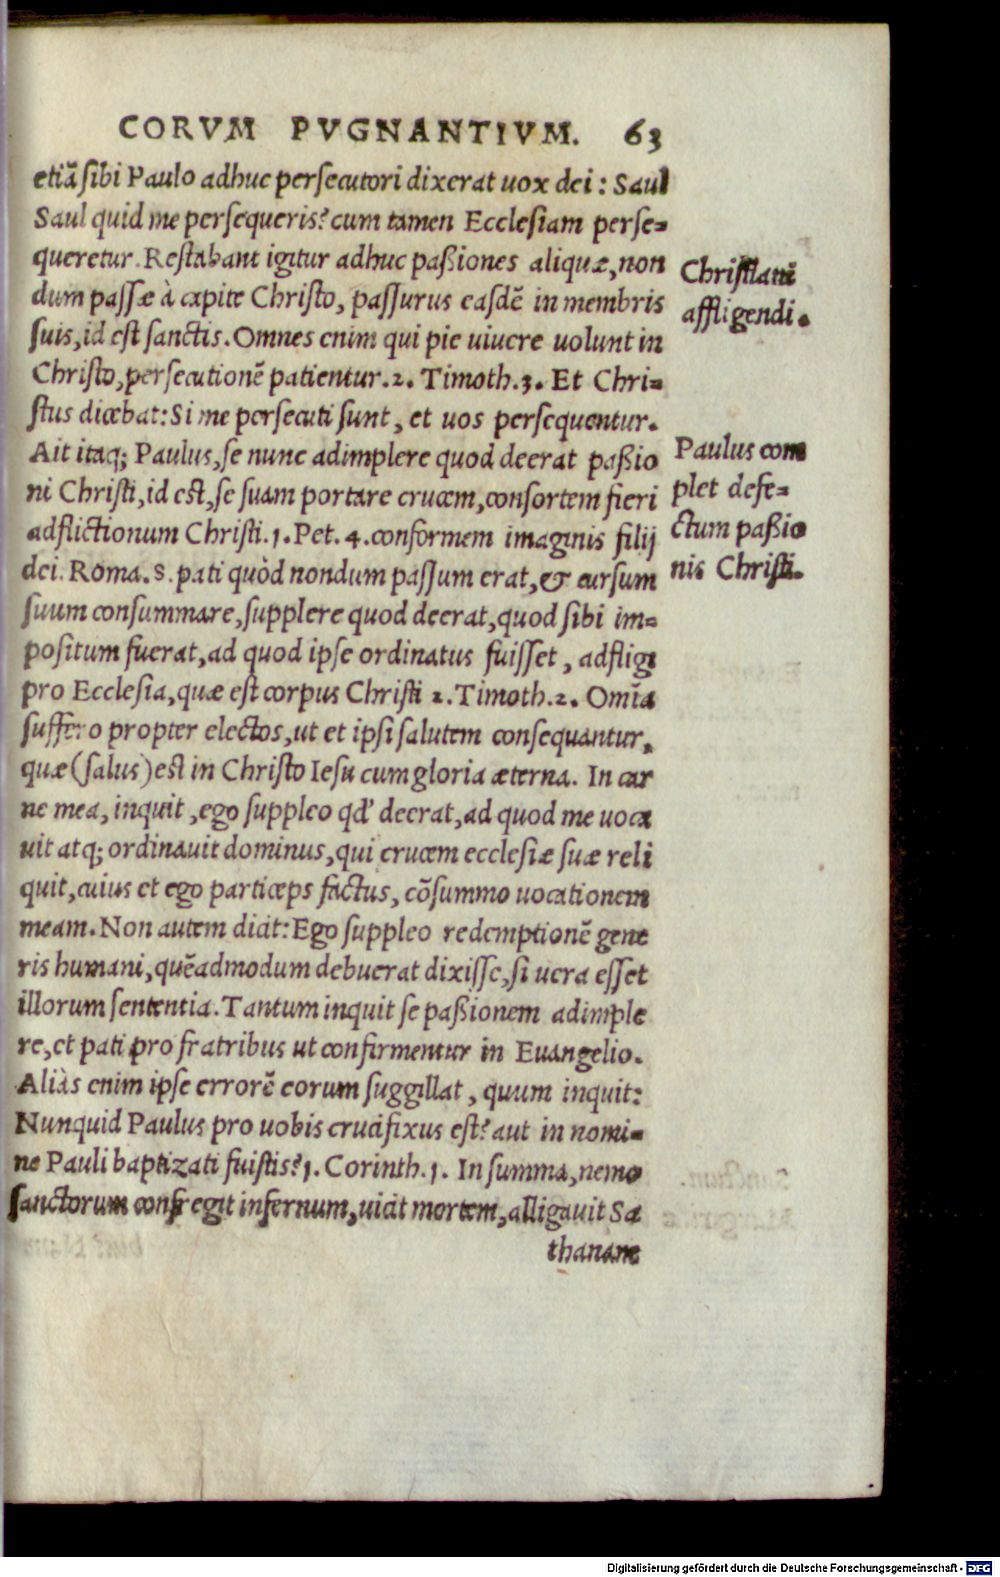 CORVM PVGNANTIVM. 63
etiã sibi Paulo adhuc persecutori dixerat uox dei: Saul
Saul quid me persequeris? cum tamen Ecclesiam perse=
queretur. Restabant igitur adhuc paßiones aliquæ, non
dum passæ à capite Christo, passurus easdẽ in membris
suis, id est sanctis. Omnes enim qui pie uiuere uolunt in
Christo, persecutionẽ patientur. 2. Timoth. 3. Et Chri=
stus dicebat: Si me persecuti sunt, et uos persequentur.
Ait itaq; Paulus, se nunc adimplere quod deerat paßio
ni Christi, id est, se suam portare crucem, consortem fieri
adflictionum Christi. 1. Pet. 4. conformem imaginis filij
dei. Roma. 8. pati quòd nondum passum erat, & cursum
suum consummare, supplere quod deerat, quod sibi im=
positum fuerat, ad quod ipse ordinatus fuisset, adfligi
pro Ecclesia, quæ est corpus Christi 2. Timoth. 2. Omĩa
suffero propter electos, ut et ipsi salutem consequantur,
quæ (salus) est in Christo Iesu cum gloria æterna. In car
ne mea, inquit, ego suppleo qď deerat, ad quod me uoca
uit atq; ordinauit dominus, qui crucem ecclesiæ suæ reli
quit, cuius et ego particeps factus, cõsummo uocationem
meam. Non autem dicit: Ego suppleo redemptionẽ gene
ris humani, quẽadmodum debuerat dixisse, si uera esset
illorum sententia. Tantum inquit se paßionem adimple
re, et pati pro fratribus ut confirmentur in Euangelio.
Aliàs enim ipse errorẽ eorum suggillat, quum inquit:
Nunquid Paulus pro uobis crucifixus est? aut in nomi=
ne Pauli baptizati fuistis? 1. Corinth. 1. In summa, nemo
sanctorum confregit infernum, uicit mortem, alligauit Sa
thanam
Christiani
affligendi.
Paulus com
plet defe=
ctum paßio
nis Christi.
Digitalisierung gefördert durch die Deutsche Forschungsgemeinschaft - DFG